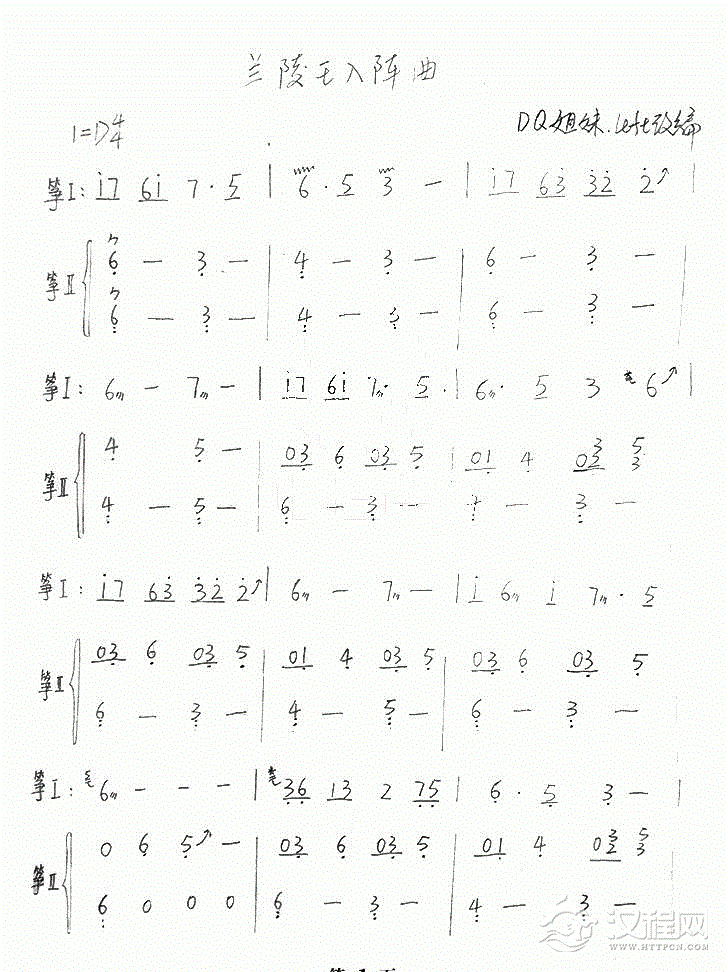 兰陵王入阵曲
1=D 4/4
DQ姐妹.left改编
筝I: i7 6i 7·5 | 6·5 3 — | i7 63 32 2↗ |
筝II { 6 — 3 — | 4 — 3 — | 6 — 3 — |
6 — 3 — | 4 — 3 — | 6 — 3 — |
筝I: 6 — 7 — | i7 6i 7· 5 · | 6· 5 3 6↗ |
筝II { 4 5 — | 03 6 03 5 | 01 4 03 2 3 5 3
4 — 5 — | 6 — 3 — | — 3 — |
筝I: i7 63 32 2↗ | 6 — 7 — | i 6 i 7 · 5
筝II { 03 6 03 5 | 01 4 03 5 | 03 6 03 5
6 — 3 — | 4 — 5 — | 6 — 3 —
筝I: 6 — — — | 36 13 2 75 | 6· 5 3 —
筝II { 0 6 5↗ — | 03 6 03 5 | 01 4 03 2 3 5 3
6 0 0 0 | 6 — 3 — | 4 — 3 —
汉程网
WWW.HTTPCN.COM